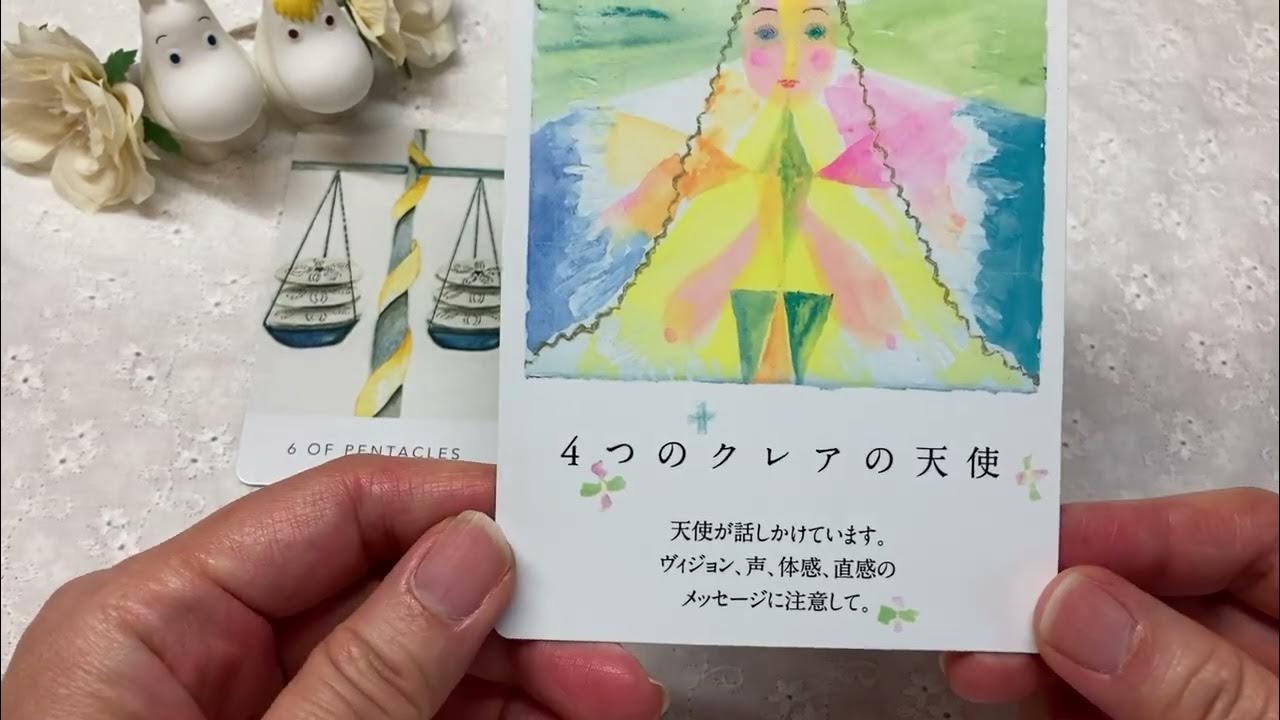 6 OF PENTACLES
4つのクレアの天使
天使が話しかけています。
ヴィジョン、声、体感、直感の
メッセージに注意して。